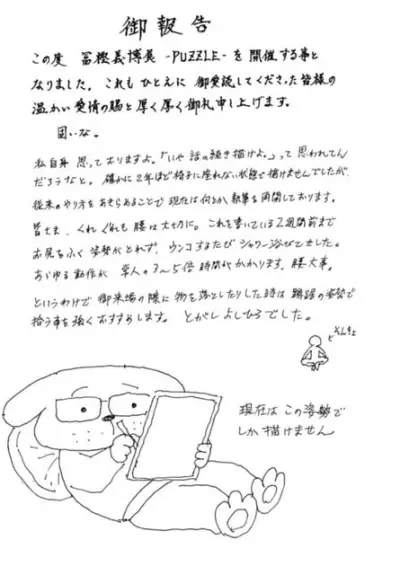 御報告
この度 冨樫義博展 -PUZZLE- を開催する事と
なりました。これも ひとえに 御愛読してくださった皆様の
温かい愛情の賜と厚く厚く御礼申し上げます。
固いな。
私自身 思っておりますよ。「いや 話の続き描けよ。」って 思われてん
だろうなと。確かに2年ほど椅子に座れない状態で描けませんでしたが、
従来のやり方をあきらめることで 現在は何とか執筆を再開しております。
皆さま、くれぐれも 腰は大切に。これを書いている2週間前まで
お尻をふく姿勢がとれず、ウンコするたび シャワー浴びてました。
あらゆる動作が 常人の3〜5倍 時間がかかります。腰大事。
というわけで 御来場の際に 物を落としたりした時は 蹲踞の姿勢で
拾う事を強くおすすめします。 とがし よしひろでした。
そんきょ
現在は この姿勢で
しか 描けません